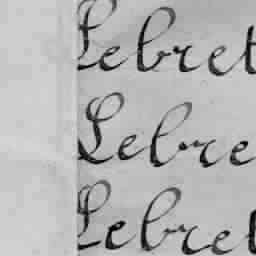 Lebret
Lebre
Lebret